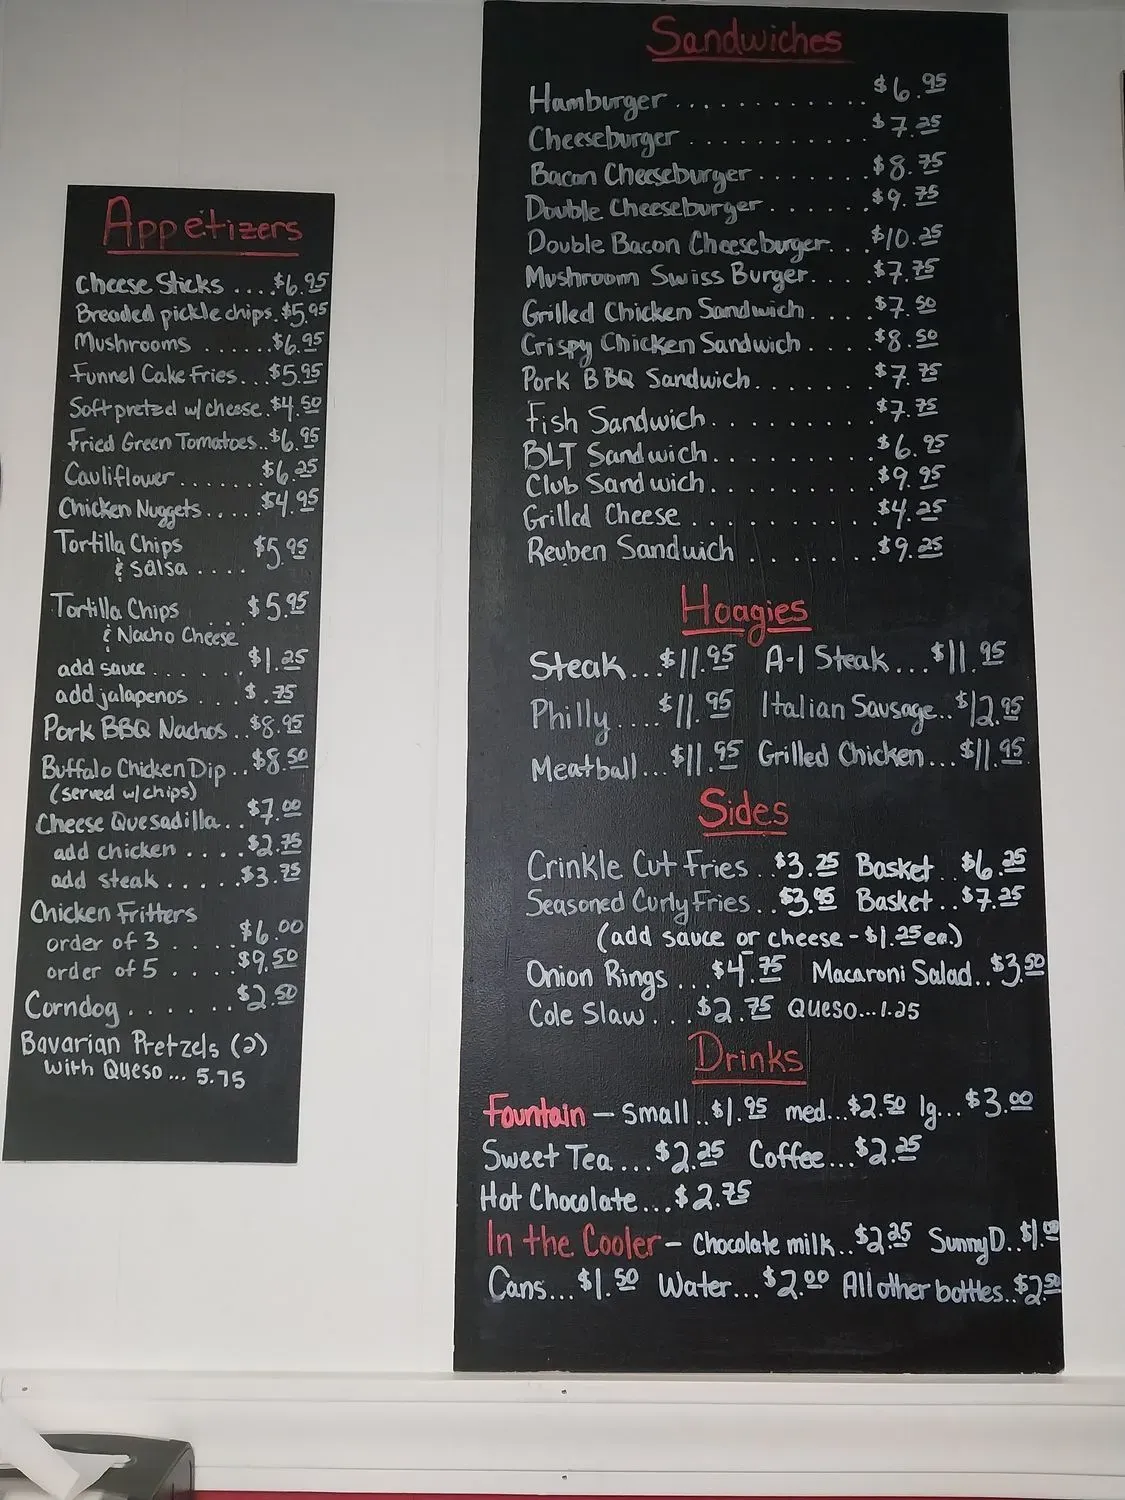 Appetizers
Cheese Sticks ....$6.95
Breaded pickle chips.$5.95
Mushrooms ......$6.95
Funnel Cake Fries...$5.95
Soft pretzel w/ cheese..$4.50
Fried Green Tomatoes..$6.95
Cauliflower .......$6.25
Chicken Nuggets....$4.95
Tortilla Chips $5.95
& Salsa ....
Tortilla Chips ... $5.95
& Nacho Cheese
add sauce.....$1.25
add jalapenos ...$.75
Pork BBQ Nachos..$8.95
Buffalo Chicken Dip..$8.50
(served w/chips)
Cheese Quesadilla..$7.00
add chicken ....$2.75
add steak.....$3.75
Chicken Fritters
order of 3 ....$6.00
order of 5 ....$9.50
Corndog......$2.50
Bavarian Pretzels (2)
with Queso... 5.75
Sandwiches
Hamburger............$6.95
Cheeseburger..........$7.25
Bacon Cheeseburger.......$8.75
Double Cheeseburger......$9.75
Double Bacon Cheeseburger...$10.25
Mushroom Swiss Burger....$7.75
Grilled Chicken Sandwich....$7.50
Crispy Chicken Sandwich....$8.50
Pork BBQ Sandwich......$7.75
Fish Sandwich.........$7.75
BLT Sandwich.........$6.95
Club Sandwich.........$9.95
Grilled Cheese..........$4.25
Reuben Sandwich .......$9.25
Hoagies
Steak...$11.95 A-1 Steak...$11.95
Philly....$11.95 Italian Sausage..$12.95
Meatball...$11.95 Grilled Chicken...$11.95
Sides
Crinkle Cut Fries ..$3.25 Basket..$6.25
Seasoned Curly Fries..$3.95 Basket..$7.25
(add sauce or cheese - $1.25 ea.)
Onion Rings ...$4.75 Macaroni Salad..$3.50
Cole Slaw...$2.75 Queso...1.25
Drinks
Fountain - Small..$1.95 med...$2.50 lg...$3.00
Sweet Tea...$2.25 Coffee...$2.25
Hot Chocolate...$2.75
In the Cooler - Chocolate milk..$2.25 SunnyD..$1.00
Cans...$1.50 Water...$2.00 All other bottles..$2.50